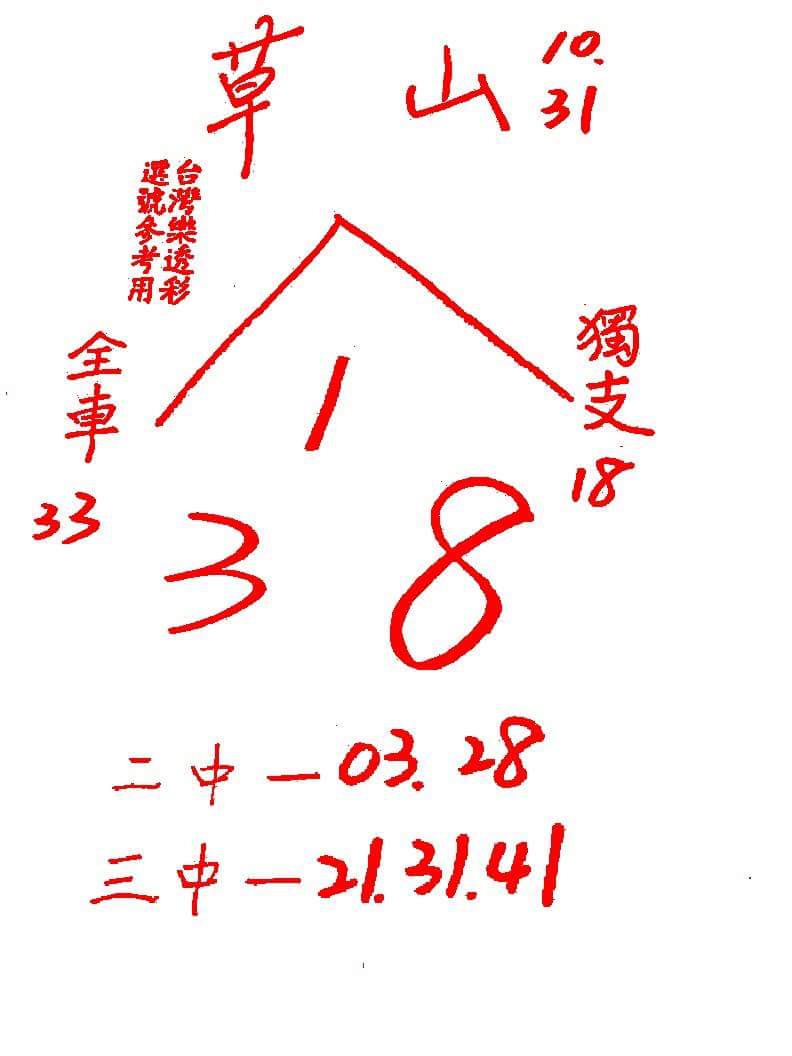 草山
10.
31
台灣樂透彩
選號參考用
全車
33
獨支
18
1
3 8
二中－03.28
三中－21.31.41